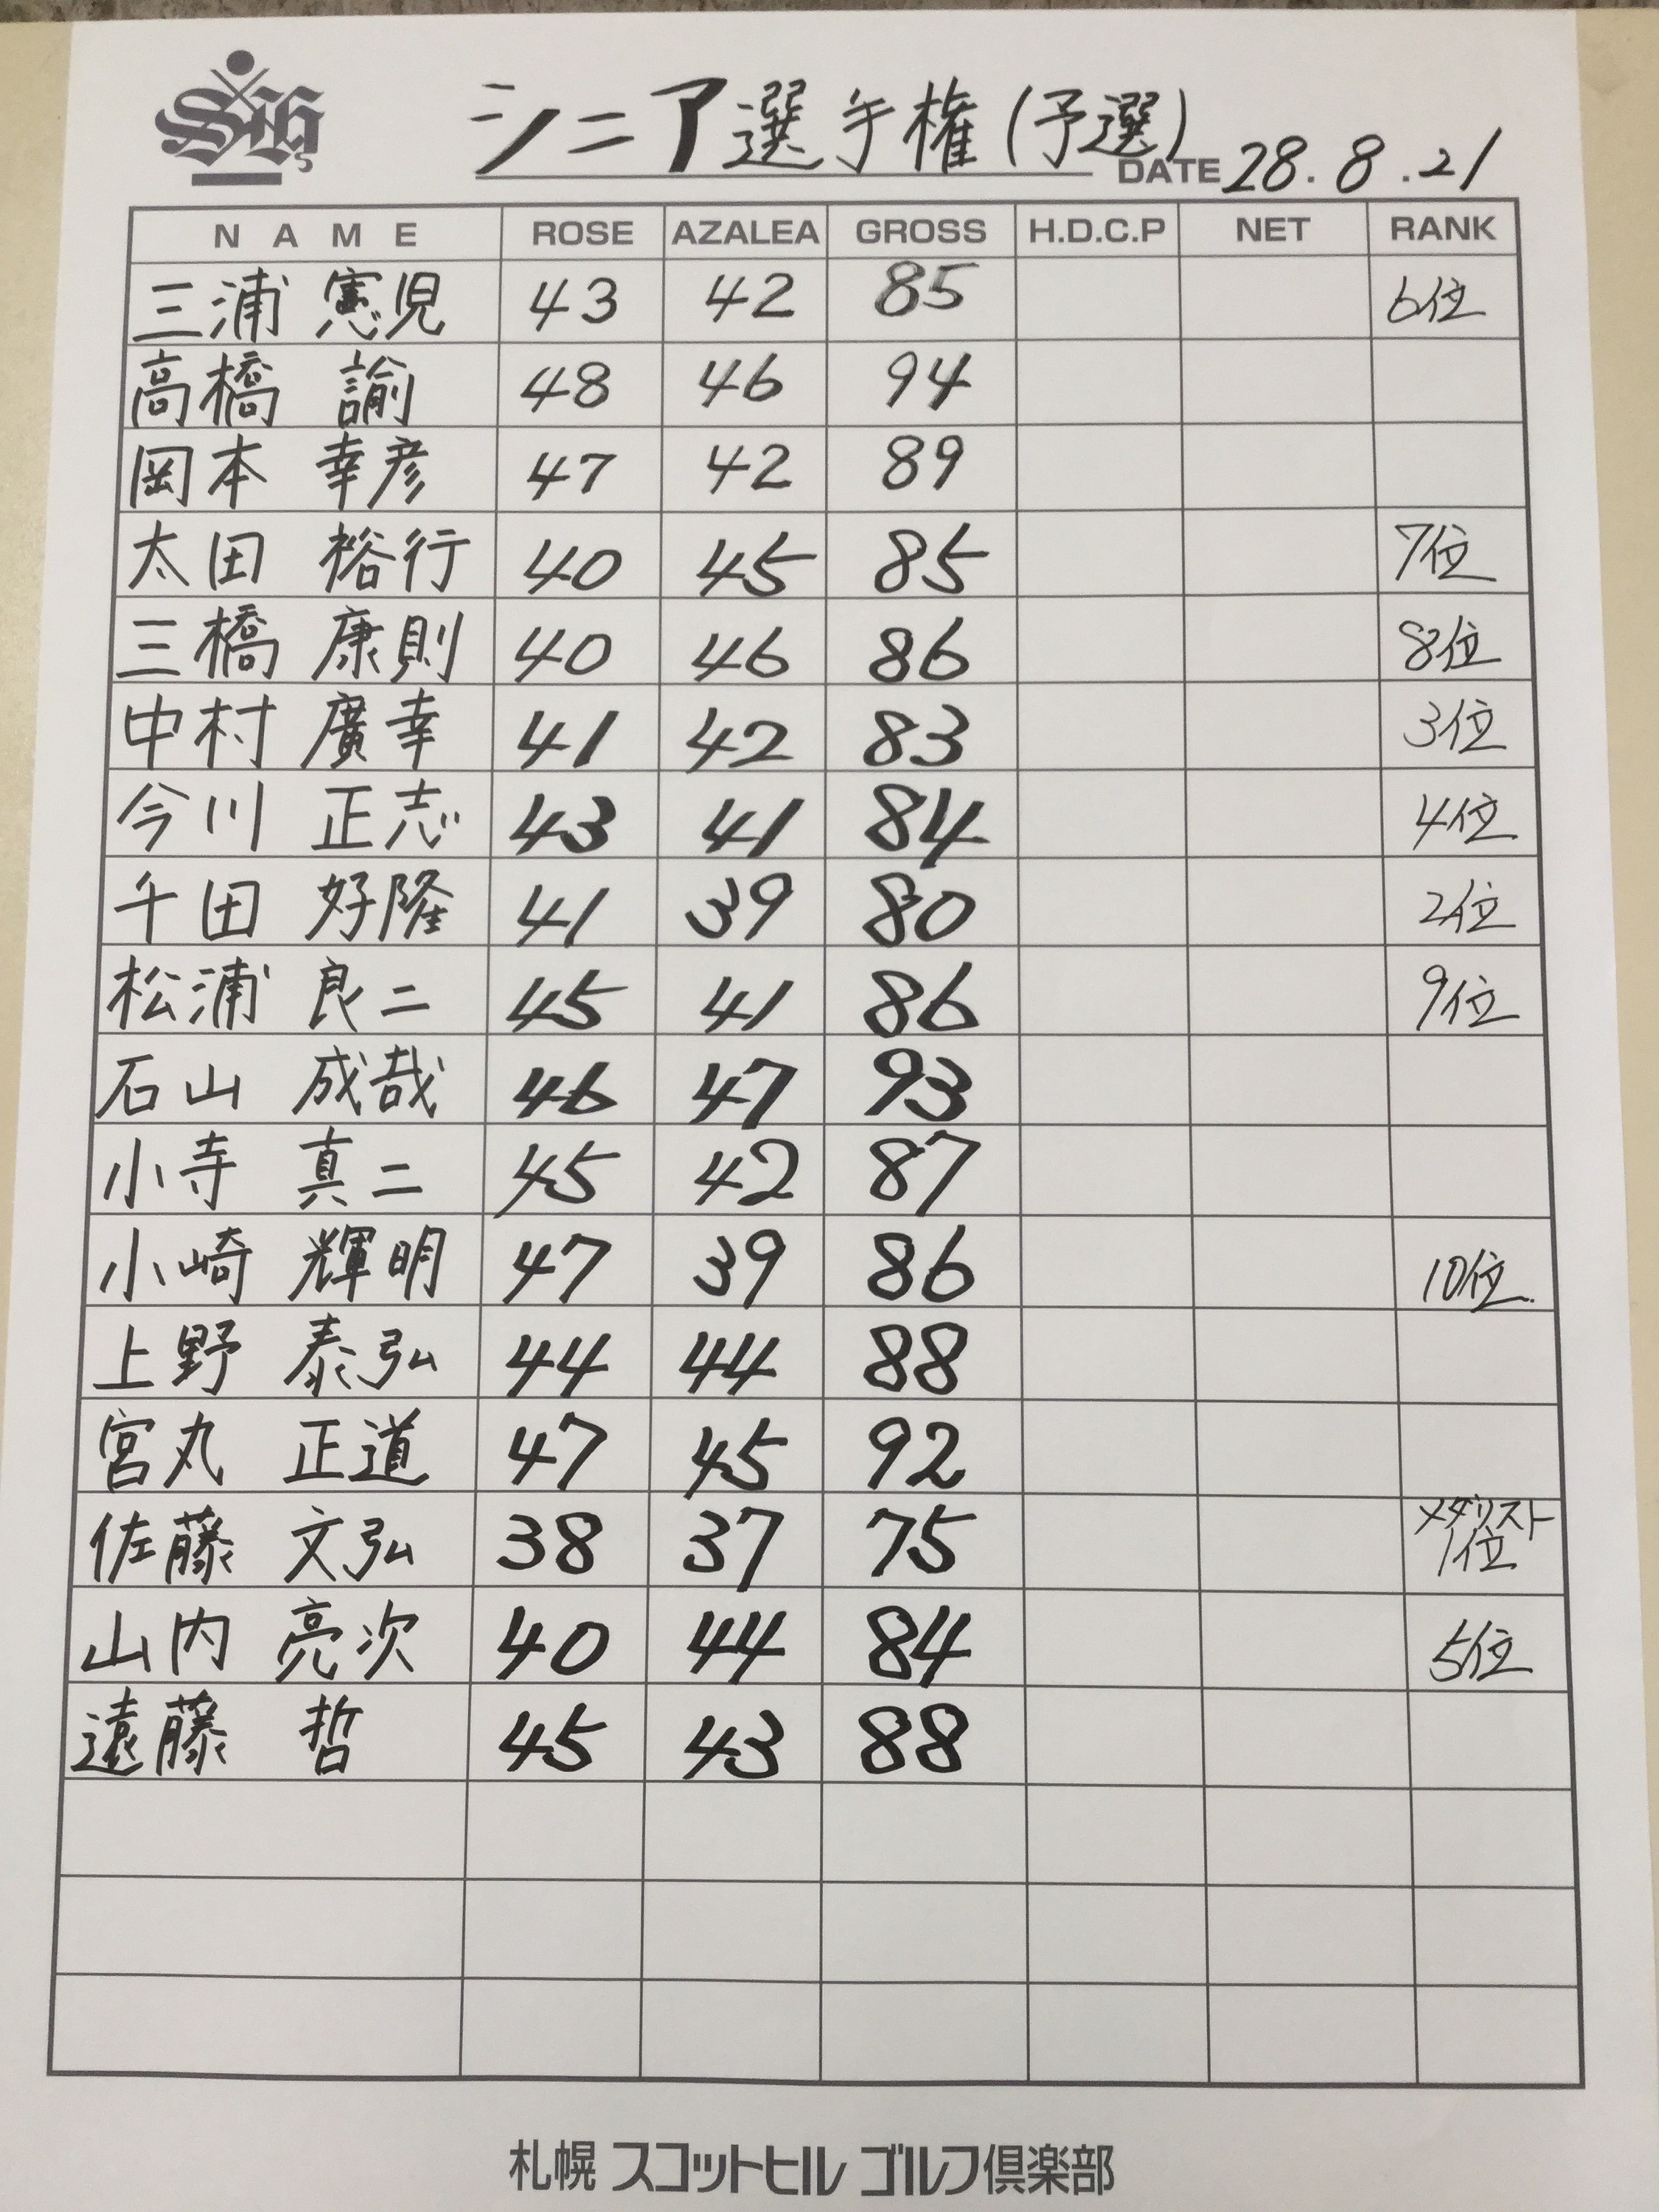 シニア選手権(予選)
DATE 28.8.21
NAME ROSE AZALEA GROSS H.D.C.P NET RANK
三浦 憲児 43 42 85 6位
高橋 諭 48 46 94
岡本 幸彦 47 42 89
太田 裕行 40 45 85 7位
三橋 康則 40 46 86 8位
中村 廣幸 41 42 83 3位
今川 正志 43 41 84 4位
千田 好隆 41 39 80 2位
松浦 良二 45 41 86 9位
石山 成哉 46 47 93
小寺 真二 45 42 87
小崎 輝明 47 39 86 10位
上野 泰弘 44 44 88
宮丸 正道 47 45 92
佐藤 文弘 38 37 75 メダリスト
1位
山内 亮次 40 44 84 5位
遠藤 哲 45 43 88
札幌 スコットヒル ゴルフ倶楽部